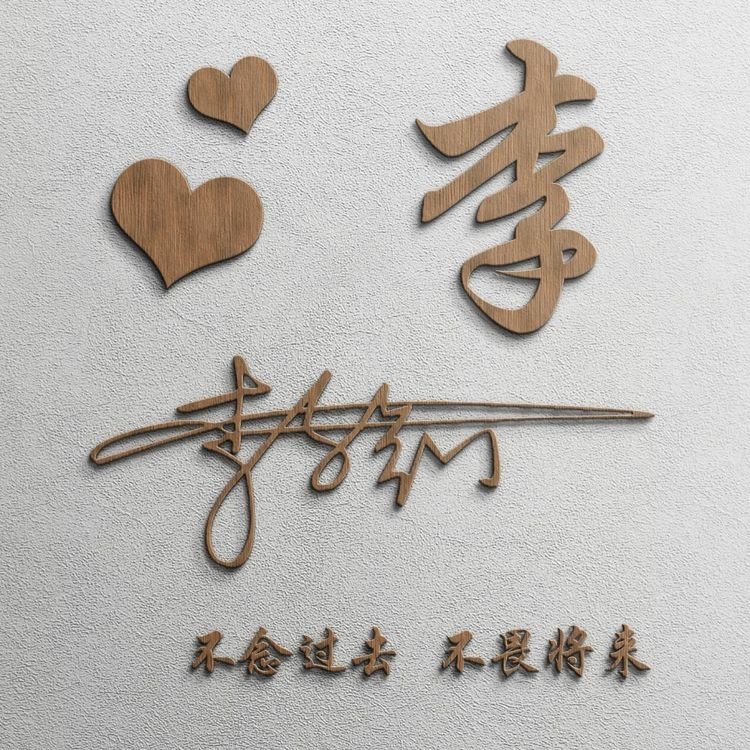 李
不念过去 不畏将来